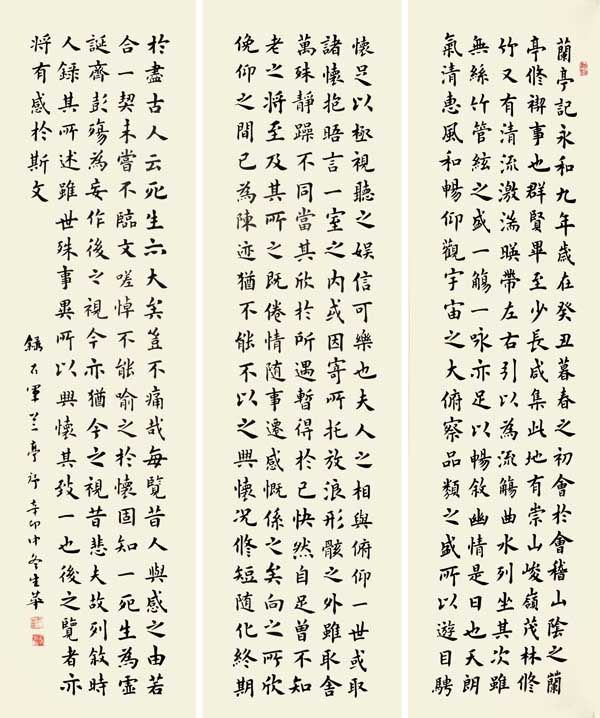 蘭亭記永和九年歲在癸丑暮春之初會於會稽山陰之蘭
亭修禊事也群賢畢至少長咸集此地有崇山峻嶺茂林修
竹又有清流激湍暎帶左右引以為流觴曲水列坐其次雖
無絲竹管絃之盛一觴一咏亦足以暢敘幽情是日也天朗
氣清惠風和暢仰觀宇宙之大俯察品類之盛所以遊目騁
懷足以極視聽之娛信可樂也夫人之相與俯仰一世或取
諸懷抱晤言一室之內或因寄所托放浪形骸之外雖取舍
萬殊靜躁不同當其欣於所遇暫得於己快然自足曾不知
老之將至及其所之既倦情隨事遷感慨係之矣向之所欣
俛仰之間已為陳迹猶不能不以之興懷况修短隨化終期
於盡古人云死生亦大矣豈不痛哉每覽昔人興感之由若
合一契未嘗不臨文嗟悼不能喻之於懷固知一死生為虛
誕齊彭殤為妄作後之視今亦猶今之視昔悲夫故列敘時
人錄其所述雖世殊事異所以興懷其致一也後之覽者亦
將有感於斯文
錄右軍蘭亭序辛卯仲冬生華